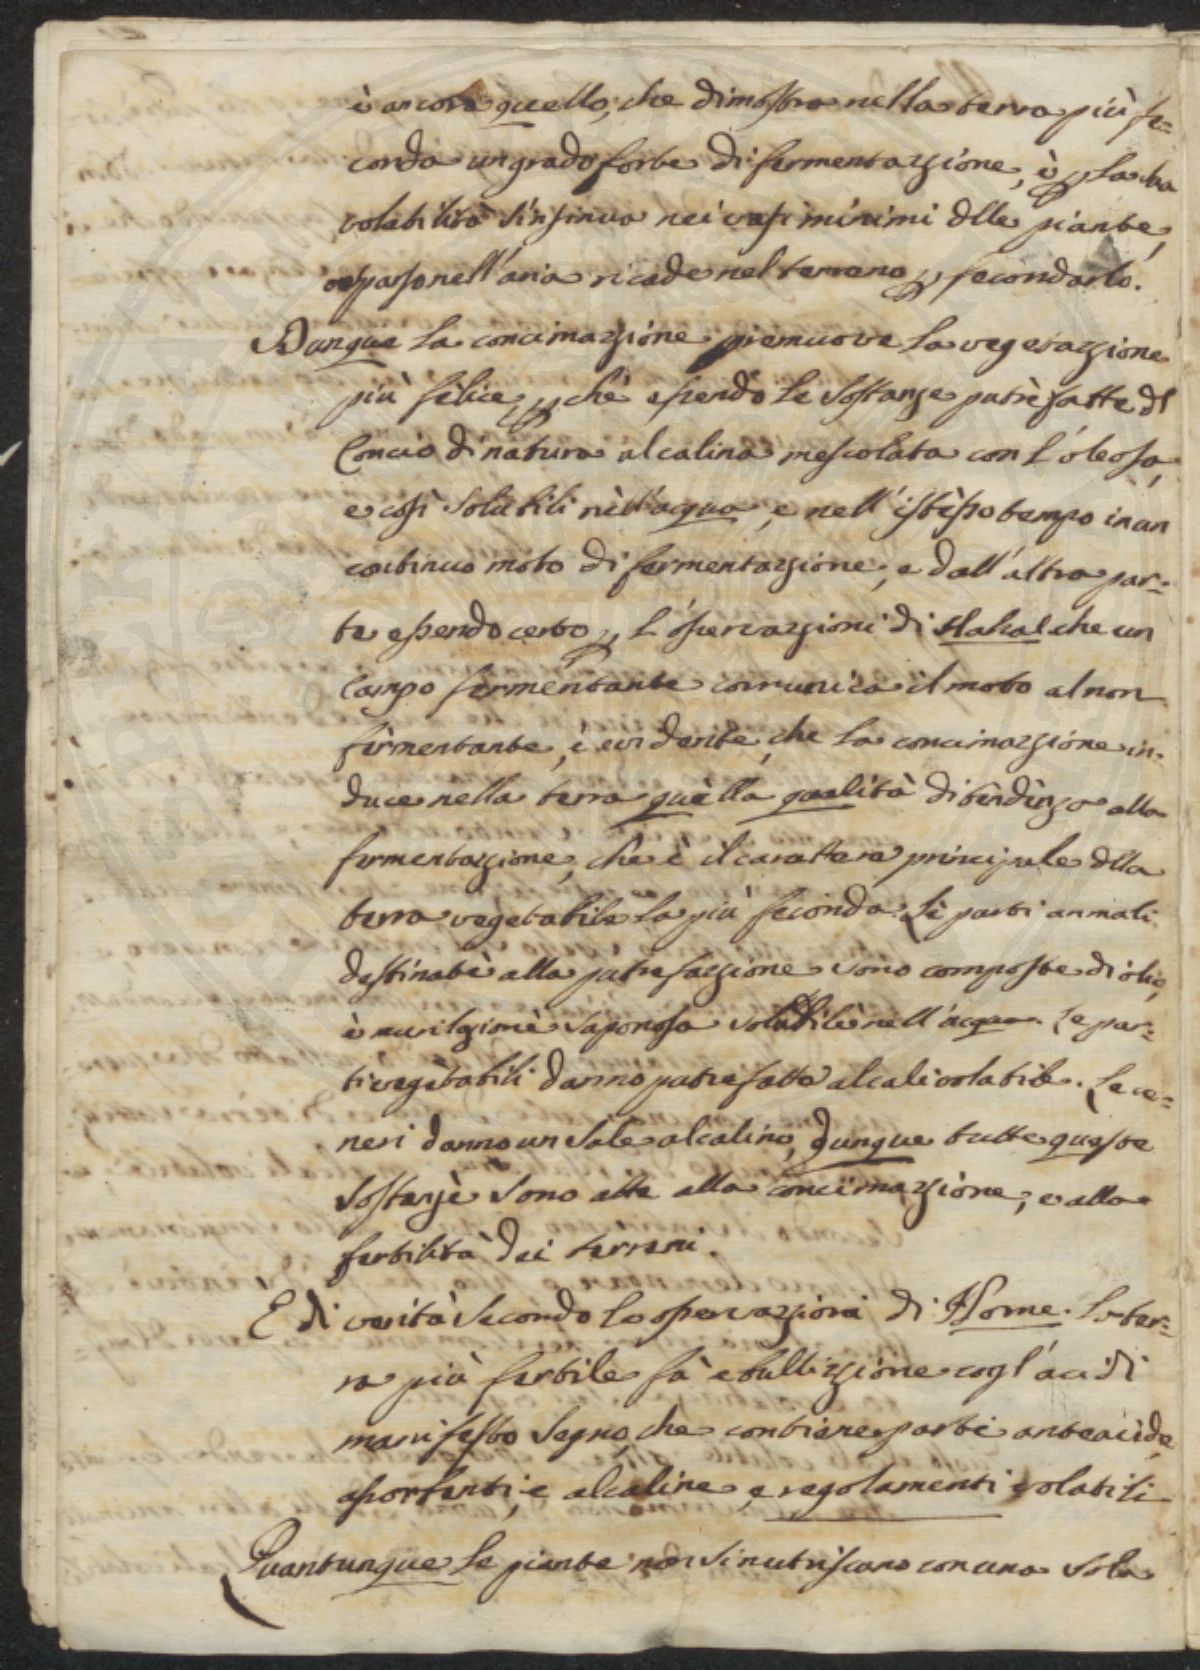 è ancora quello, che dimostra nella terra più fe=
conda un grado forte di fermentazzione, è p la sua
volatilità s'insinua nei vasi minimi dlle piante,
o sparso nell'aria ricade nel terreno p fecondarlo.
Dunque la concimazzione promuove la vegetazzione
più felice, p chè essendo le sostanze putrefatte dl
Concio di natura alcalina mescolata con l'oleosa,
e così solubili nell'acqua, e nell'istesso tempo in un
continuo moto di fermentazzione, e dall'altra par=
te essendo certo p l'osservazzioni di che un
Campo fermentante comunica il moto al non
fermentante, è evidente, che la concimazzione in=
duce nella terra quella qualità di tendenza alla
fermentazzione, che è il carattere principale dlla
terra vegetabile la più feconda. Le parti animali
destinate alla putrefazzione sono composte di olio,
è saponosa solubile nell'acqua. Le par=
ti vegetabili danno putrefatte alcali volatile. Le ce=
neri danno un sale alcalino, dunque tutte queste
sostanze sono atte alla concimazzione, e alla
fertilità dei terreni.
E di verità secondo le osservazzioni di Home. la ter=
ra più fertile fà ebullizzione cogl'acidi
manifesto segno, che contiene parti anteacide,
assorbenti, e alcaline, e regolamenti volatili
Quantunque le piante non si nutriscano con una sola